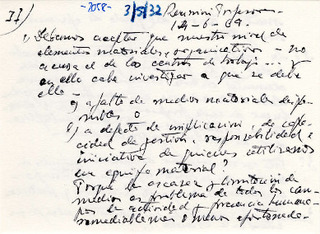 II)
-7058-
3/5/32
Reunión Profesores
14-6-69.
1. Debemos aceptar que nuestro nivel de
elementos materiales, organizativos - no
acusa el de los centros de trabajo ... y
en ello cabe investigar a que se debe
ello -
a falta de medios materiales dispo-
nibles o
b) a defecto de implicación, de capa-
cidad de gestión, responsabilidad e
iniciativa de quienes utilizamos
un equipo material?
Porque la escasez y limitación de
medios es problema de todos los cam-
pos de actividad y presencia humana